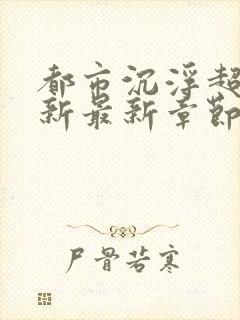 都市沉浮超
新最新章節
尸骨若寒